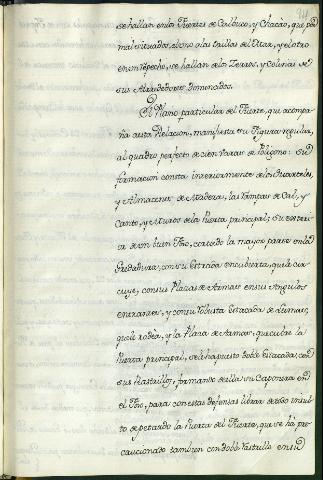 se hallan en los Fuertes de Calbuco, y Chacao, que por
mal situados, el uno a las orillas del Mar, y el otro
en un Repecho, se hallan a los Zerros, y Colinas de
sus Alrrededores Dominados.
El Plano particular del Fuerte, que acompa-
ña a esta Relacion, manifiesta su Figura regular,
al quadro perfecto de cien varas de Poligono: Su
formacion consta interiormente de los Quarteles,
y Almacenes de Madera, las Rampas de Cal, y
Canto, y el Muro de la Puerta principal; Su exterior
de un buen Foso, cortado la mayor parte en la
Piedra dura, con su Estrada encubierta, que la cir-
cuye, con sus Plazas de Armas en sus Angulos
entrantes, y con su robusta Estacada de Lumas,
que la rodea, y la Plaza de Armas, que cubre la
Puerta principal, se le ha puesto doble Estacada, con
sus Rastrillos, formando de ella su Caponera en
el Foso, para con estas defensas librar de todo insul-
to de petardo la Puerta del Fuerte, que se ha pre-
caucionado tambien con doble Rastrillo en su